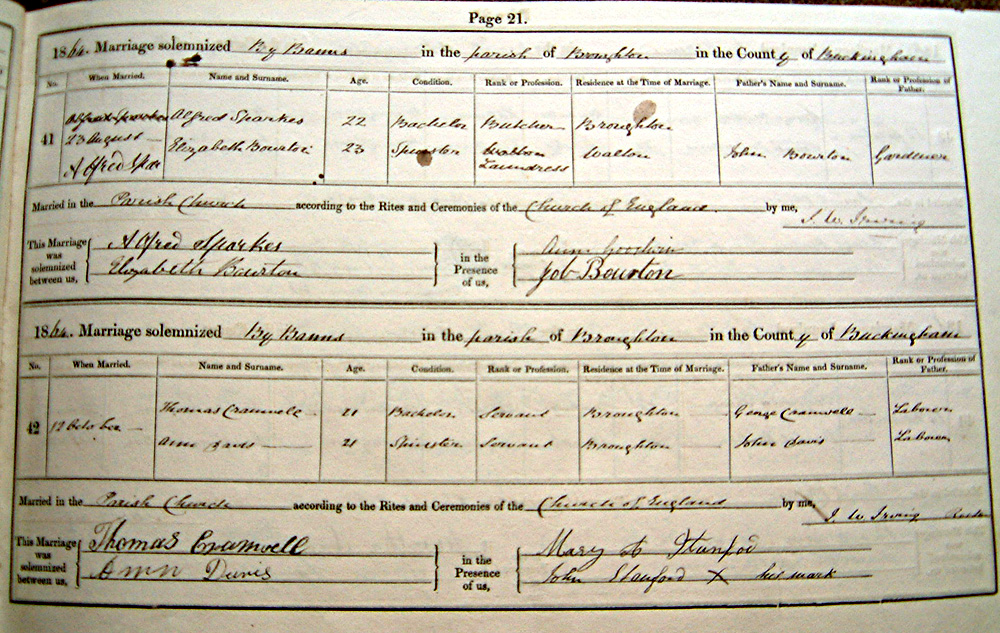 Page 21.
1864. Marriage solemnized By Banns in the parish of Broughton in the County of Buckingham
No. When Married. Name and Surname. Age. Condition. Rank or Profession. Residence at the Time of Marriage. Father's Name and Surname. Rank or Profession of Father.
Alfred Sparkes Alfred Sparkes 22 Bachelor Butcher Broughton
41 23 August Elizabeth Bourton 23 Spinster Walton Walton John Bourton Gardener
Alfred Spar Laundress
Married in the Parish Church according to the Rites and Ceremonies of the Church of England. by me, J. W. Irving
This Marriage was solemnized between us, Alfred Sparkes in the Presence of us, Ann Goodwin
Elizabeth Bourton Job Bourton
1864. Marriage solemnized By Banns in the parish of Broughton in the County of Buckingham
No. When Married. Name and Surname. Age. Condition. Rank or Profession. Residence at the Time of Marriage. Father's Name and Surname. Rank or Profession of Father.
Thomas Cramwell 21 Bachelor Servant Broughton George Cramwell Laborer
42 12 October Ann Davis 21 Spinster Servant Broughton John Davis Laborer
Married in the Parish Church according to the Rites and Ceremonies of the Church of England by me, J. W. Irving Rector
This Marriage was solemnized between us, Thomas Cramwell in the Presence of us, Mary A Stanford
Ann Davis John Stanford X his mark